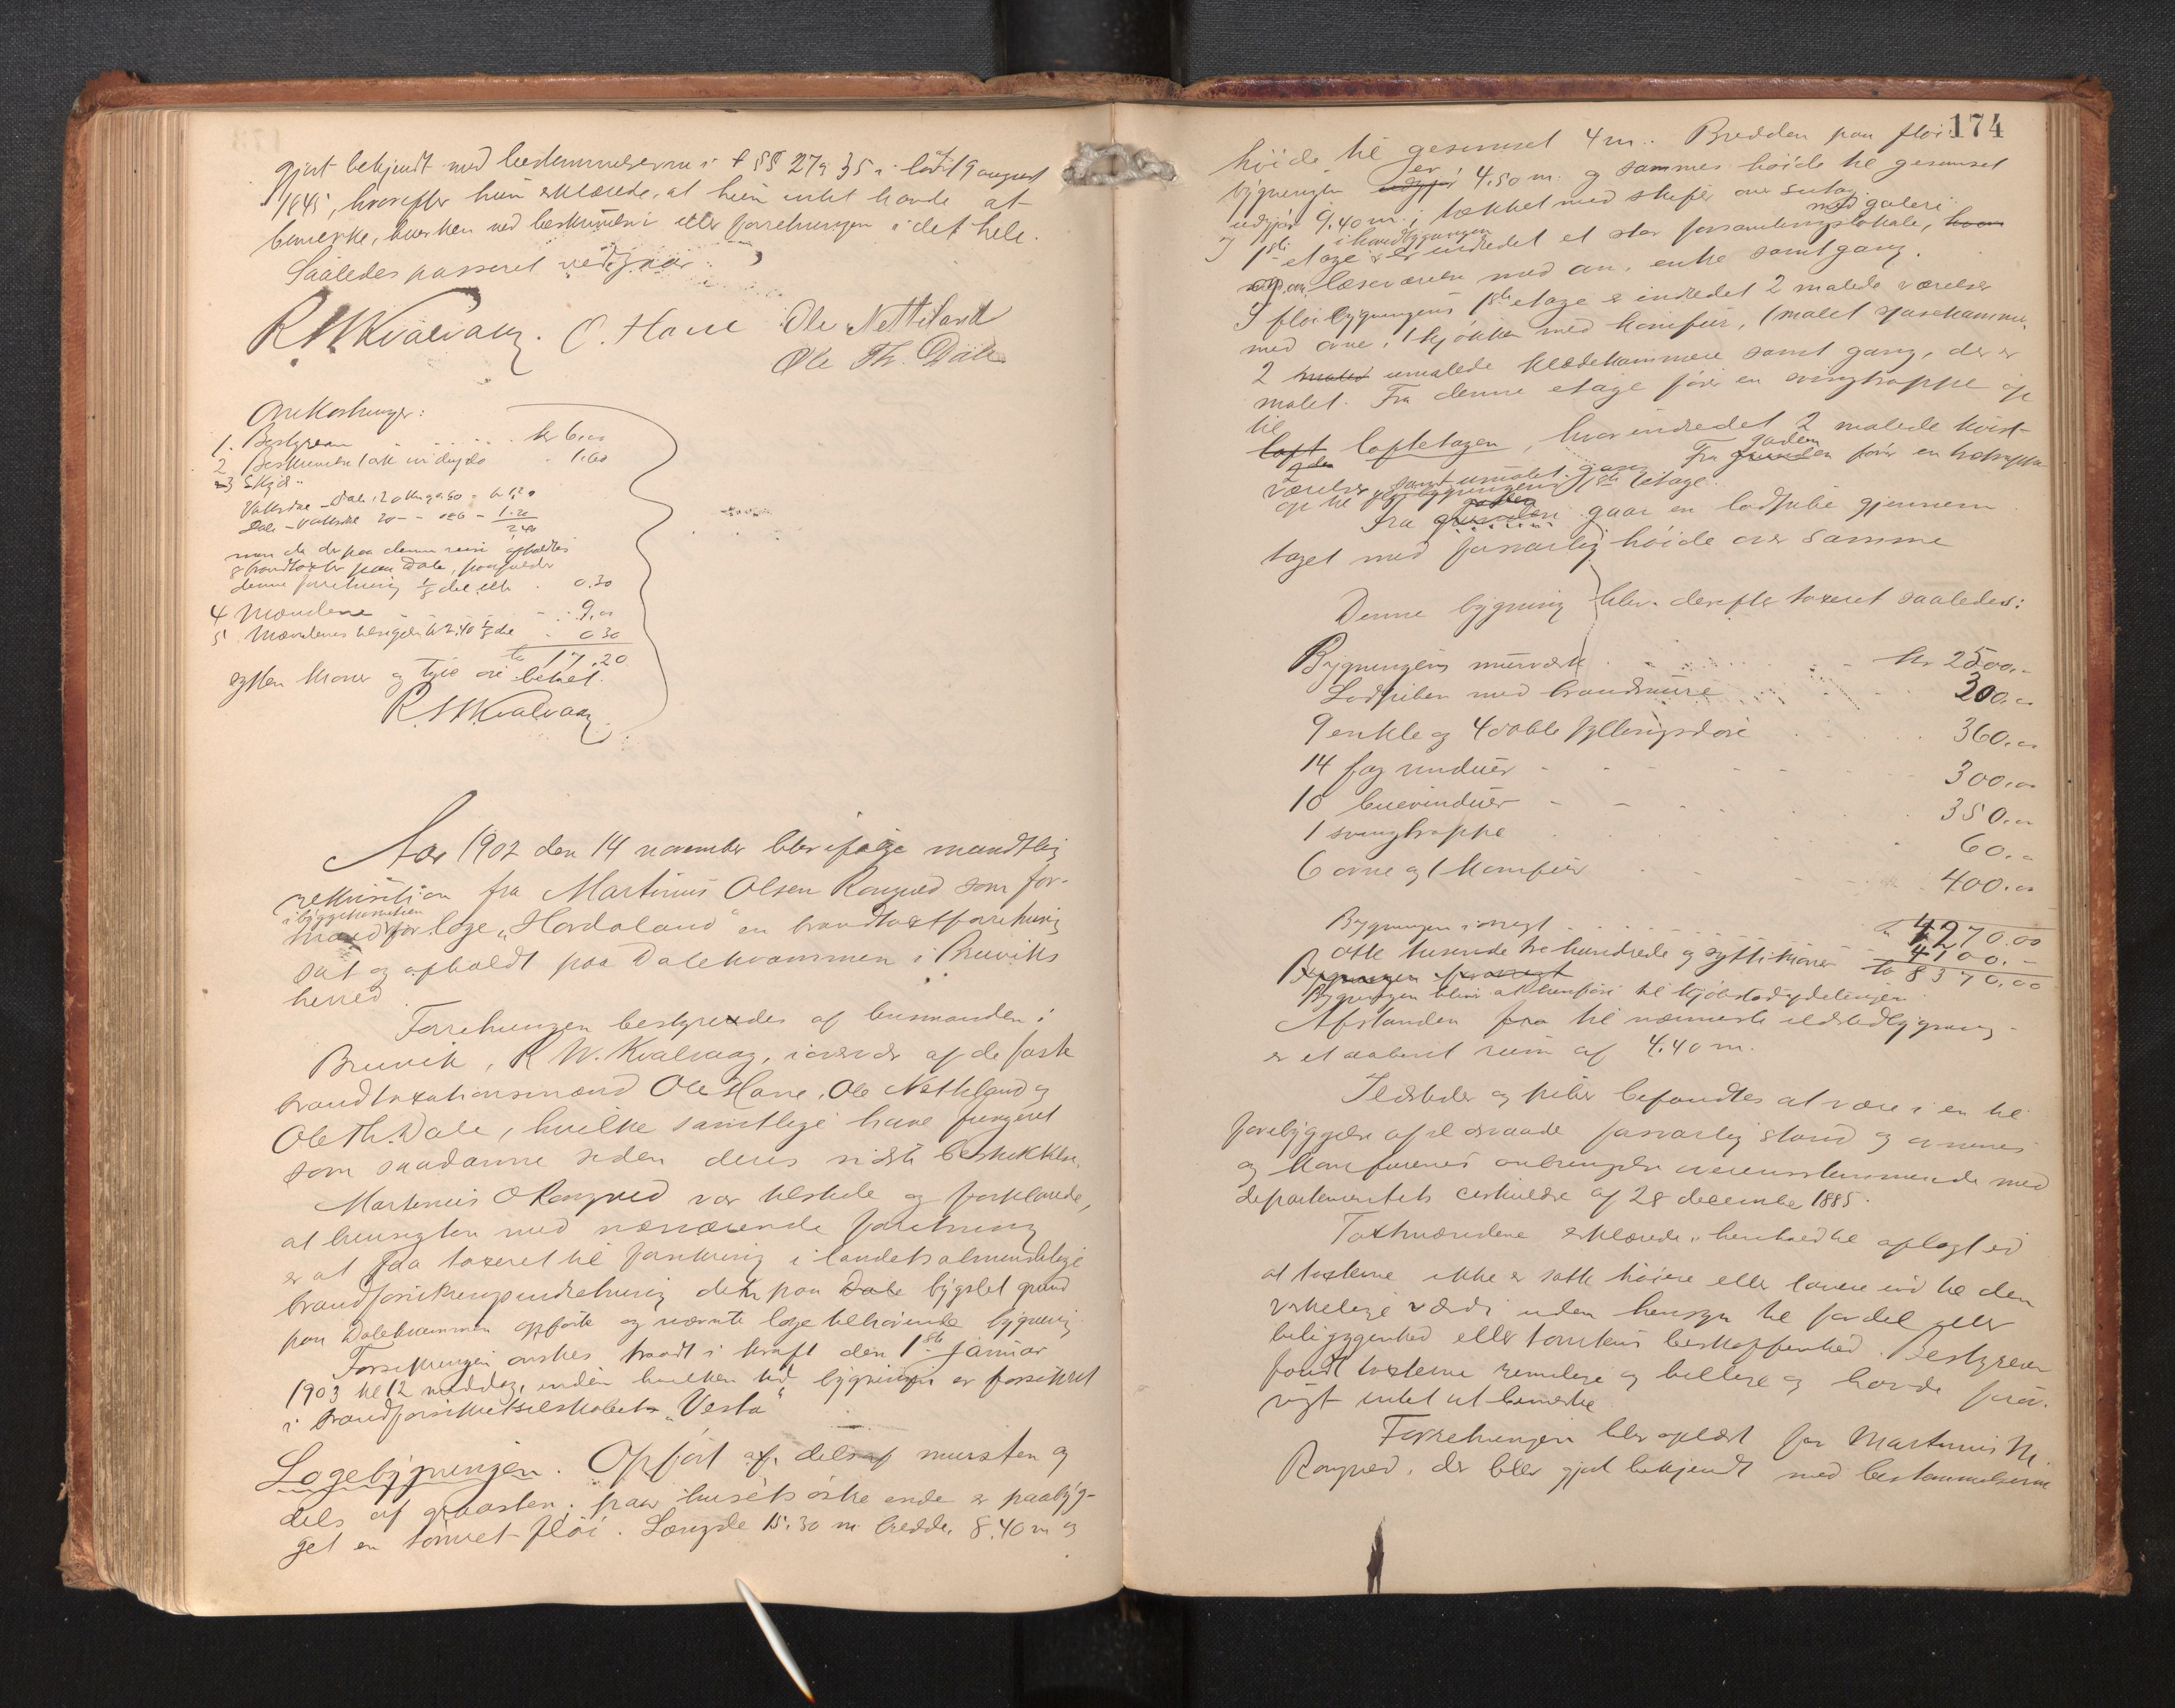 gjort bekjendt med bestemmelserne i §§ 27 og 35 i lov 19 august
1845, hvorefter hun erklærede, at hun intet havde at
bemerke, hverken ved beskrivelsen eller forretningen i det hele.
Saaledes passeret vidner
R. W. Kvalvaag. O. Hane Ole Netteland
Ole Th. Dale
Omkostninger:
1. Bestyreren kr 6.00
2 Beskrivelse 1 ark 1.60
3 Skyds
Vaksdal – Dale 1.20
Dale – Vaksdal 1.20
2.40
men da der paa denne reise afholdtes
8 brandtaxter paa Dale, paafalder
denne forretning 1/8 del 0.30
4 Mændene 9.00
5 Mændenes kr 2.40 1/8 del 0 30
kr 17.20
sytten kroner og tyve øre betalt.
R. W. Kvalvaag
Aar 1902 den 14 november blev ifølge mundtlig
rekvisition fra Martinus Olsen Rongved som for-
i byggekomiteen
mand for loge "Hordaland" en brandtaxtforretning
sat og afholdt paa Dalekvammen i Bruviks
herred
Forretningen bestyredes af lensmanden i
Bruvik, R. W. Kvalvaag, i overvær af de faste
brandtaxationsmænd Ole Hane, Ole Netteland og
Ole Th. Dale, hvilke samtlige have fungeret
som saadanne siden deres sidste beskikkelse.
Martinus O Rongved var tilstede og forklarede,
at hensigten med nærværende forretning
er at faa taxeret til forsikring i landets almindelige
brandforsikringsindretning den paa Dale bygslet grund
paa Dalekvammen opførte og nævnte loge tilhørende bygning
Forsikringen ønskes traadt i kraft den 1ste januar
1903 kl 12 middag, inden hvilken tid bygningen er forsikret
i brandforsikringsselskabet "Vesta"
Logebygningen. Opført af dels af mursten og
dels af graasten; paa husets østre ende er paabyg-
get en tømret fløi. Længde 15.30 m bredde, 8.40 m og
174
høide til gesimset 4 m.. Bredden paa fløi-
bygningen er 4.50 m. og sammes høide til gesimset
udgjør 9.40 m.; tækket med skifer over sutag
I 1ste etage i hovedbygningen er indredet et stor forsamlingslokale, med galeri
læseværelse med ovn, entre samt gang.
I fløibygningens 1ste etage er indredet 2 malede værelser
med ovne, 1 kjøkken med komfur, 1 malet spisekammer,
2 umalede klædekammere samt gang, der er
malet. Fra denne etage fører en svingtrappe op
til
loftetagen, hvor indredet 2 malede kvist-
værelser samt umalet gang. Fra gaden fører en trætrappe
op til fløibygningens 1ste etage.
Fra grunden gaar en lodpibe gjennem
taget med forsvarlig høide over samme
Denne bygning blev derefter taxeret saaledes:
Bygningens murværk kr 2500.-
Lodpiben med brandmure 300.00
9 enkle og 4 doble fyllingsdøre 360.00
14 fag vinduer 300.00
10 buevinduer 350.00
1 svingtrappe 60.00
6 ovne og 1 komfur 400.00
4270.00
Bygningen iøvrigt 4100.-
otte tusende tre hundrede og sytti kroner kr 8370.00
Bygningen iøvrigt
Bygningen bliver at henføre til kjøbstadafdelingen.
Afstanden fra til nærmeste ildstedbygning
er et aabent rum af 4.40 m.
Ildsteder og piber befandtes at være i en til
forebyggelse af ildsvaade forsvarlig stand og ovnenes
og komfurenes anbringelse overensstemmende med
departementets cirkulære af 28 december 1885.
Taxtmændene erklærede i henhold til aflagt ed
at taxterne ikke er satte høiere eller lavere end til den
virkelige værdi uden hensyn til fordel eller
beliggenhed eller tomtens beskaffenhed. Bestyreren
fandt taxterne rimelige og billige og havde for-
øvrigt intet at bemerke
Forretningen blev oplæst for Martinus
Rongved, der blev gjort bekjendt med bestemmelserne